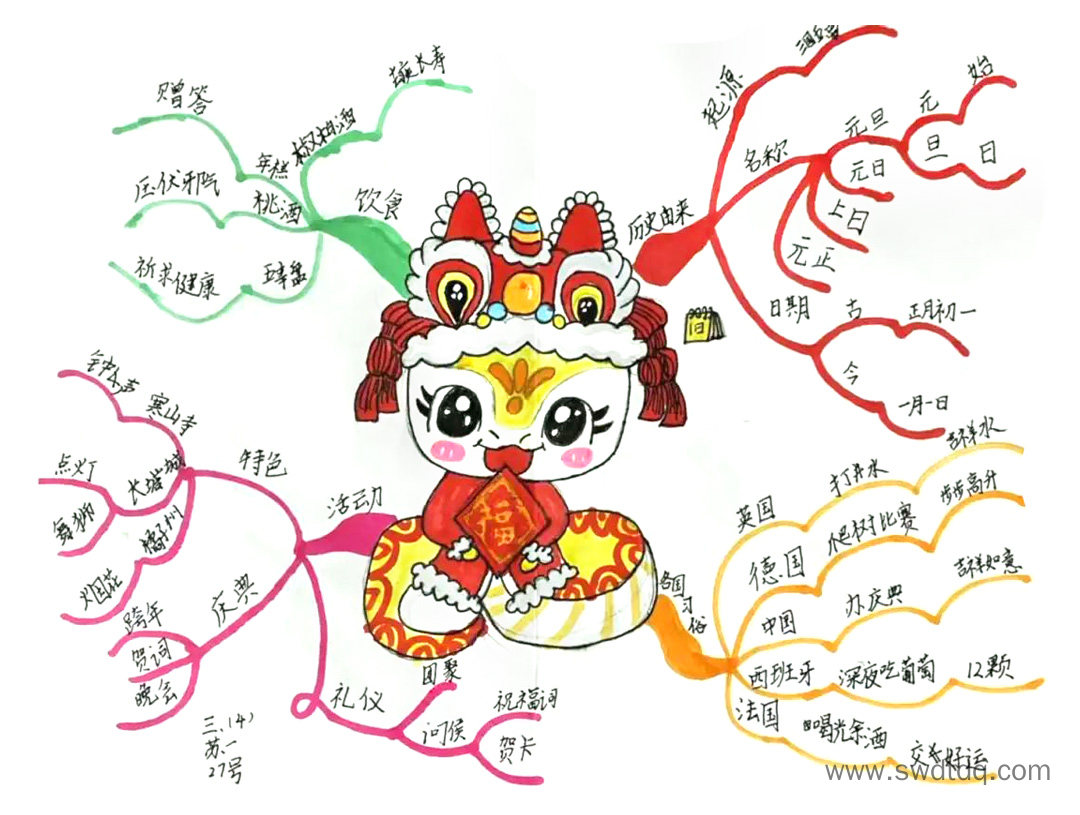 历史由来
起源
名称
元旦
元
始
旦
日
元日
上日
元正
日期
古
正月初一
今
一月一日
饮食
椒柏酒
年糕
赠答
桃酒
压伏邪气
祈求健康
活动
特色
寒山寺
钟声
长城
点灯
舞狮
橘子州
烟花
庆典
跨年
贺词
晚会
礼仪
团聚
问侯
祝福词
贺卡
各国习俗
英国
打井水
吉祥水
德国
爬树比赛
步步高升
中国
办庆典
吉祥如意
西班牙
深夜吃葡萄
12颗
法国
喝光余酒
交好运
福
三.(4)
苏一
27号
www.swdtdq.com